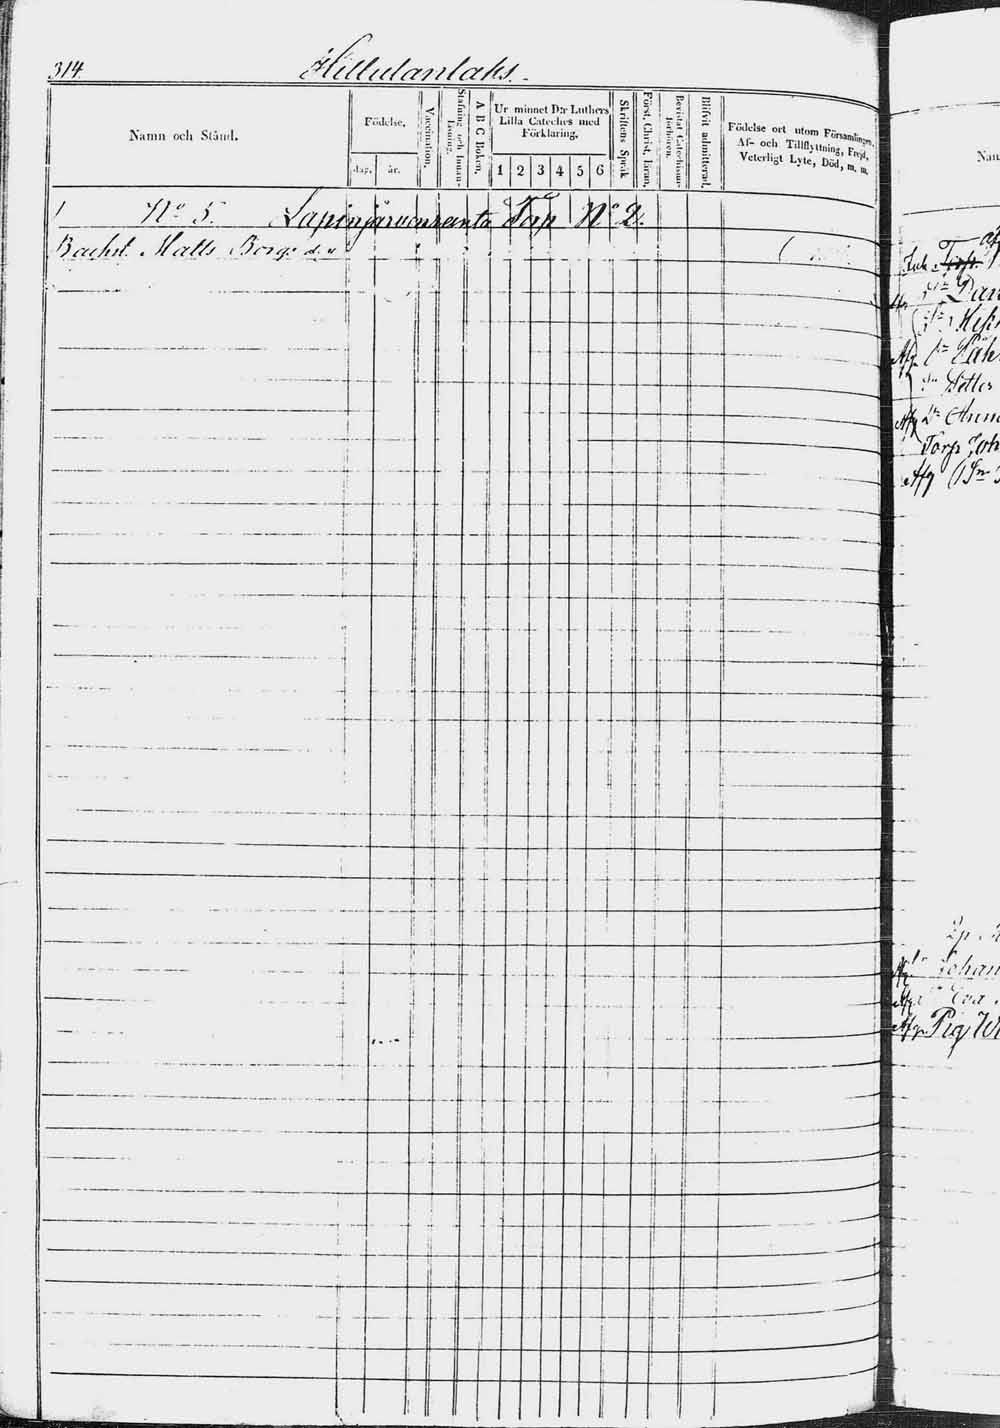 314.
Hillulanlaks.
Namn och Stånd.
Födelse,
dag.
år.
Vaccination.
Stafning och Innanläsning.
A B C Boken.
Ur minnet D:r Luthers Lilla Cateches med Förklaring,
1 2 3 4 5 6
Skriftens Språk
Först. Christ. läran,
Bevistat Catechismi-förhören.
Blifvit admitterad.
Födelse ort utom Församlingen,
Af- och Tillflyttning, Frejd,
Veterligt Lyte, Död, m. m.
No 5. Lapinjärvenranta Torp No 2.
Bachst. Matts
Nam
Dan
Afg
Petter
Afg Anna
Torp Joh
Afg
Johan
Afg Eva
Afg Pig